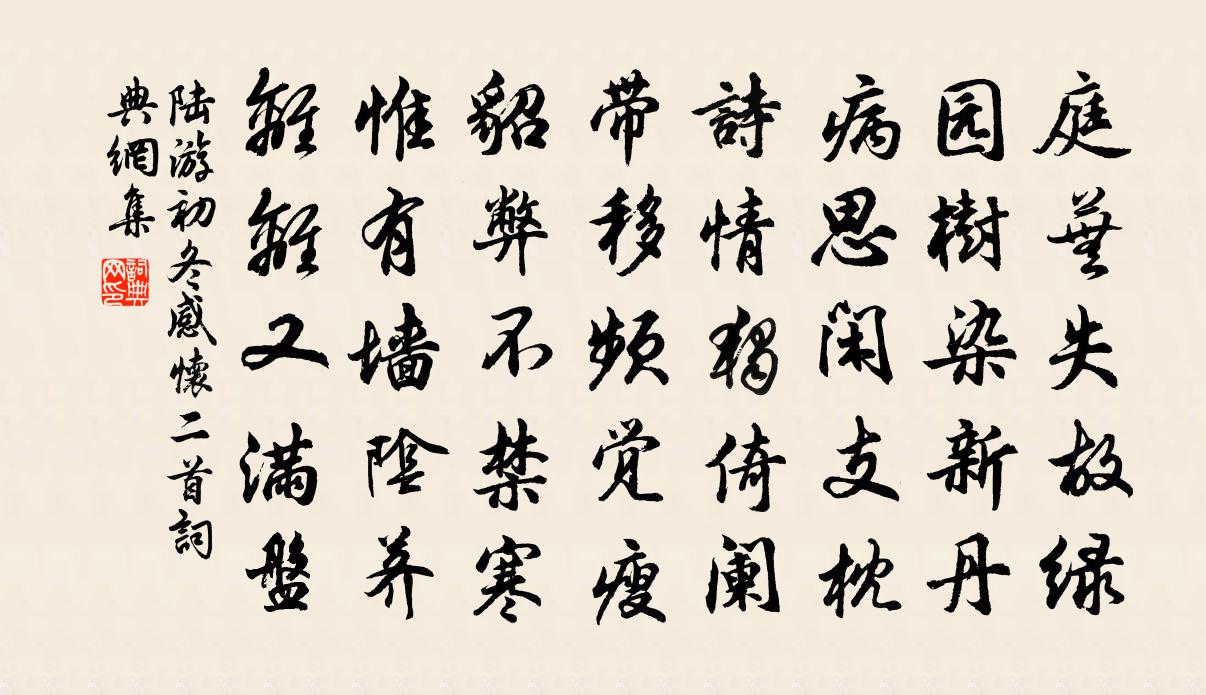 庭蕪失故绿
园樹染新丹
病思闲支枕
詩情獨倚阑
带移频觉瘦
貂弊不禁寒
惟有墙陰荠
離離又满盤
陆游初冬感懷二首詞
典網集
詞典
网印